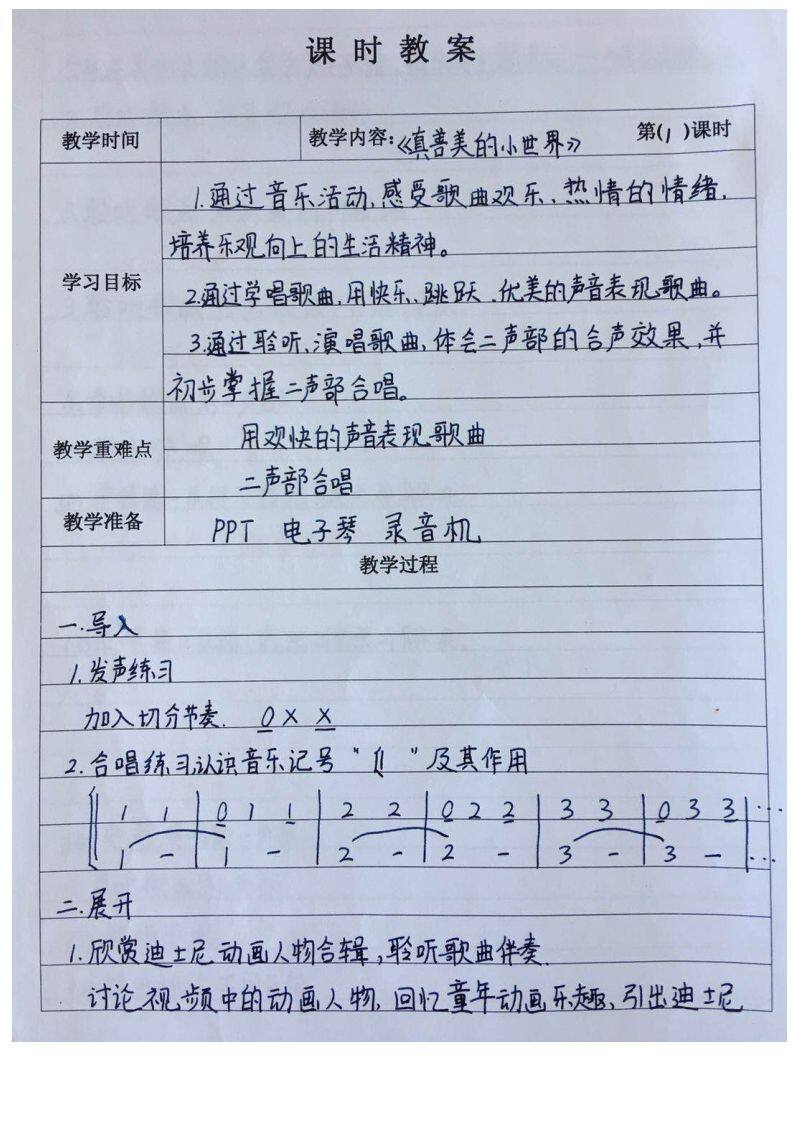 课时教案
教学时间 教学内容:《真善美的小世界》 第(1)课时
学习目标
1.通过音乐活动,感受歌曲欢乐、热情的情绪,
培养乐观向上的生活精神。
2.通过学唱歌曲,用快乐、跳跃、优美的声音表现歌曲。
3.通过聆听、演唱歌曲,体会二声部的合声效果,并
初步掌握二声部合唱。
教学重难点
用欢快的声音表现歌曲
二声部合唱
教学准备 PPT 电子琴 录音机
教学过程
一.导入
1.发声练习
加入切分节奏. 0 X X
2.合唱练习,认识音乐记号“{”及其作用
1 1 | 0 1 1 | 2 2 | 0 2 2 | 3 3 | 0 3 3 | ...
1 - | 1 - | 2 - | 2 - | 3 - | 3 - | ...
二.展开
1.欣赏迪士尼动画人物合辑,聆听歌曲伴奏.
讨论视频中的动画人物,回忆童年动画乐趣,引出迪士尼